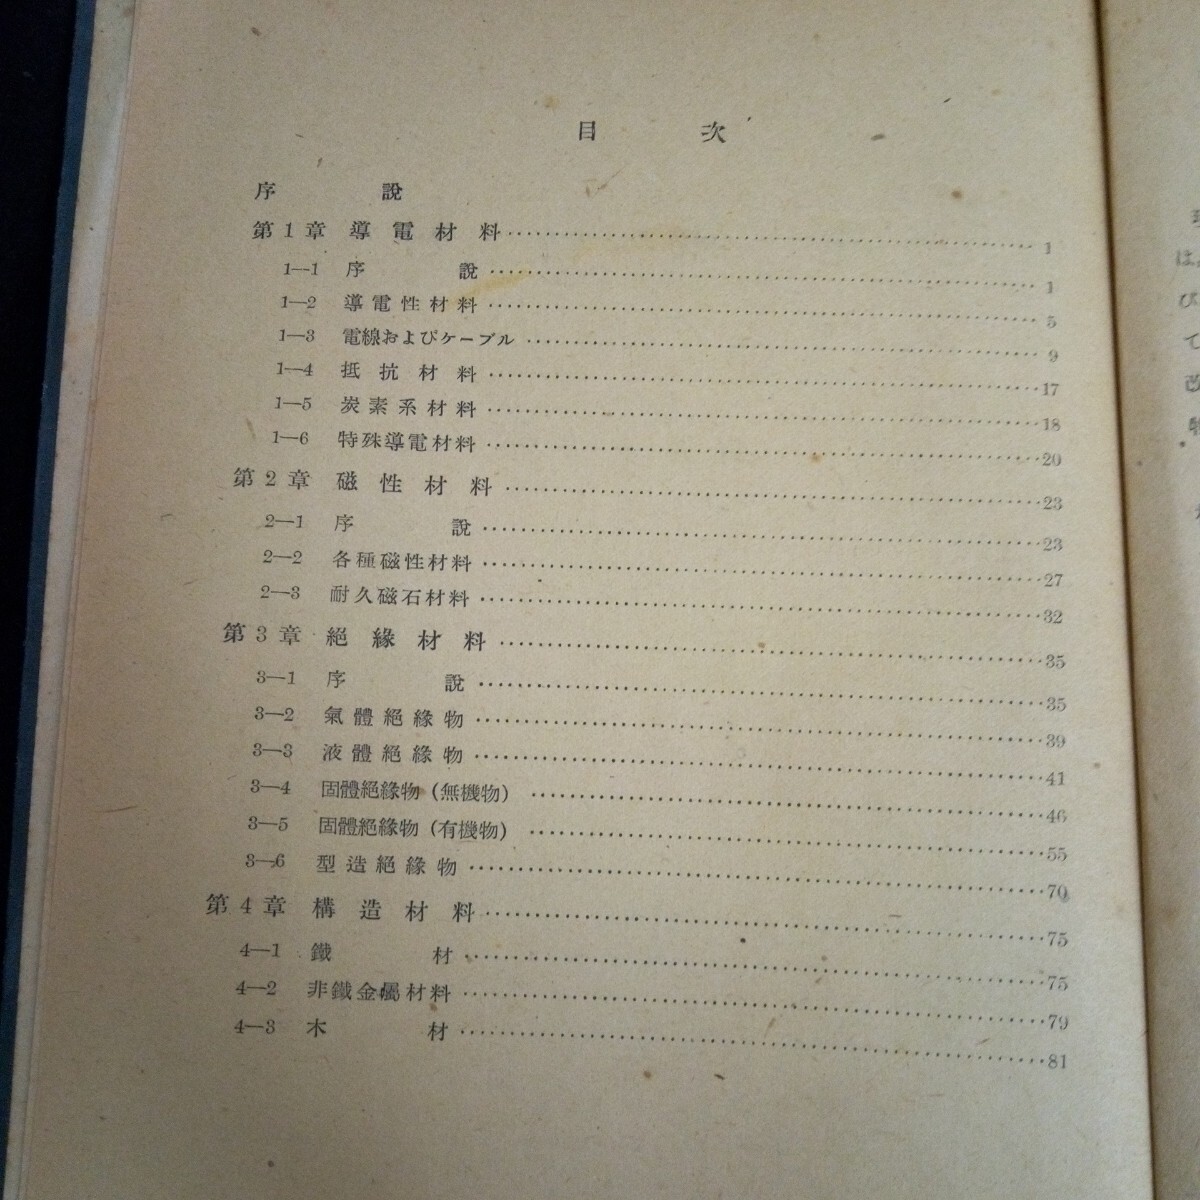 目次
序説
第1章 導電材料 1
1—1 序説 1
1—2 導電性材料 5
1—3 電線およびケーブル 9
1—4 抵抗材料 17
1—5 炭素系材料 18
1—6 特殊導電材料 20
第2章 磁性材料 23
2—1 序説 23
2—2 各種磁性材料 27
2—3 耐久磁石材料 32
第3章 絕緣材料 35
3—1 序説 35
3—2 氣體絕緣物 39
3—3 液體絕緣物 41
3—4 固體絕緣物 (無機物) 46
3—5 固體絕緣物 (有機物) 55
3—6 型造絕緣物 70
第4章 構造材料 75
4—1 鐵材 75
4—2 非鐵金屬材料 79
4—3 木材 81
は
び
て
改